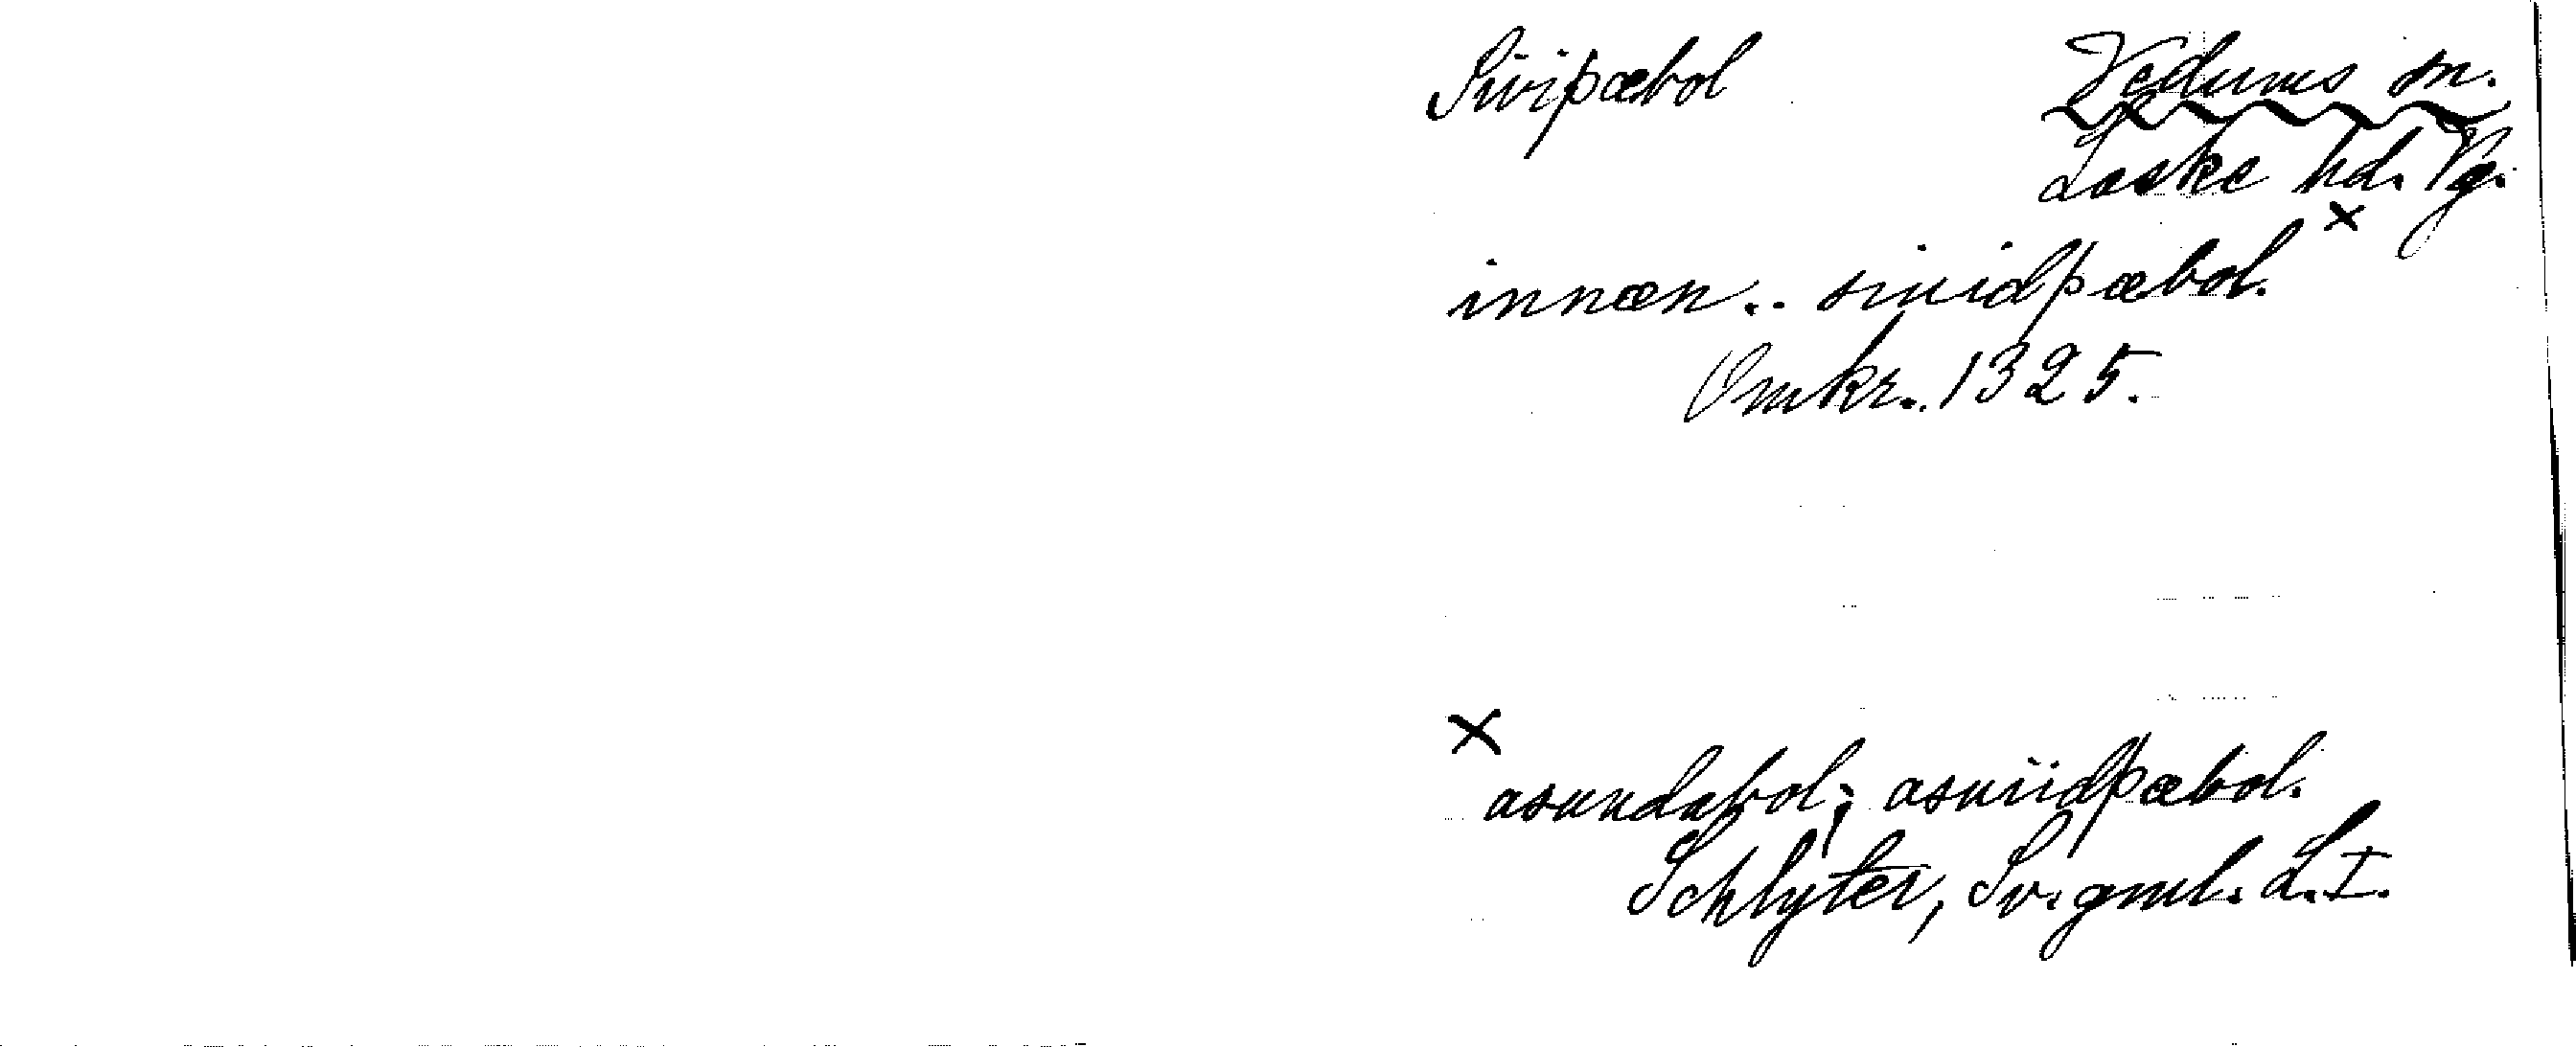 Siviþæbol
Vedums sn.
Laske hd. Vg.
innæn.. siuidþæbol. ×
Omkr. 1325.
×
asundabol; asuiidþæbol.
Schlyter, Sv. gml. L. I.